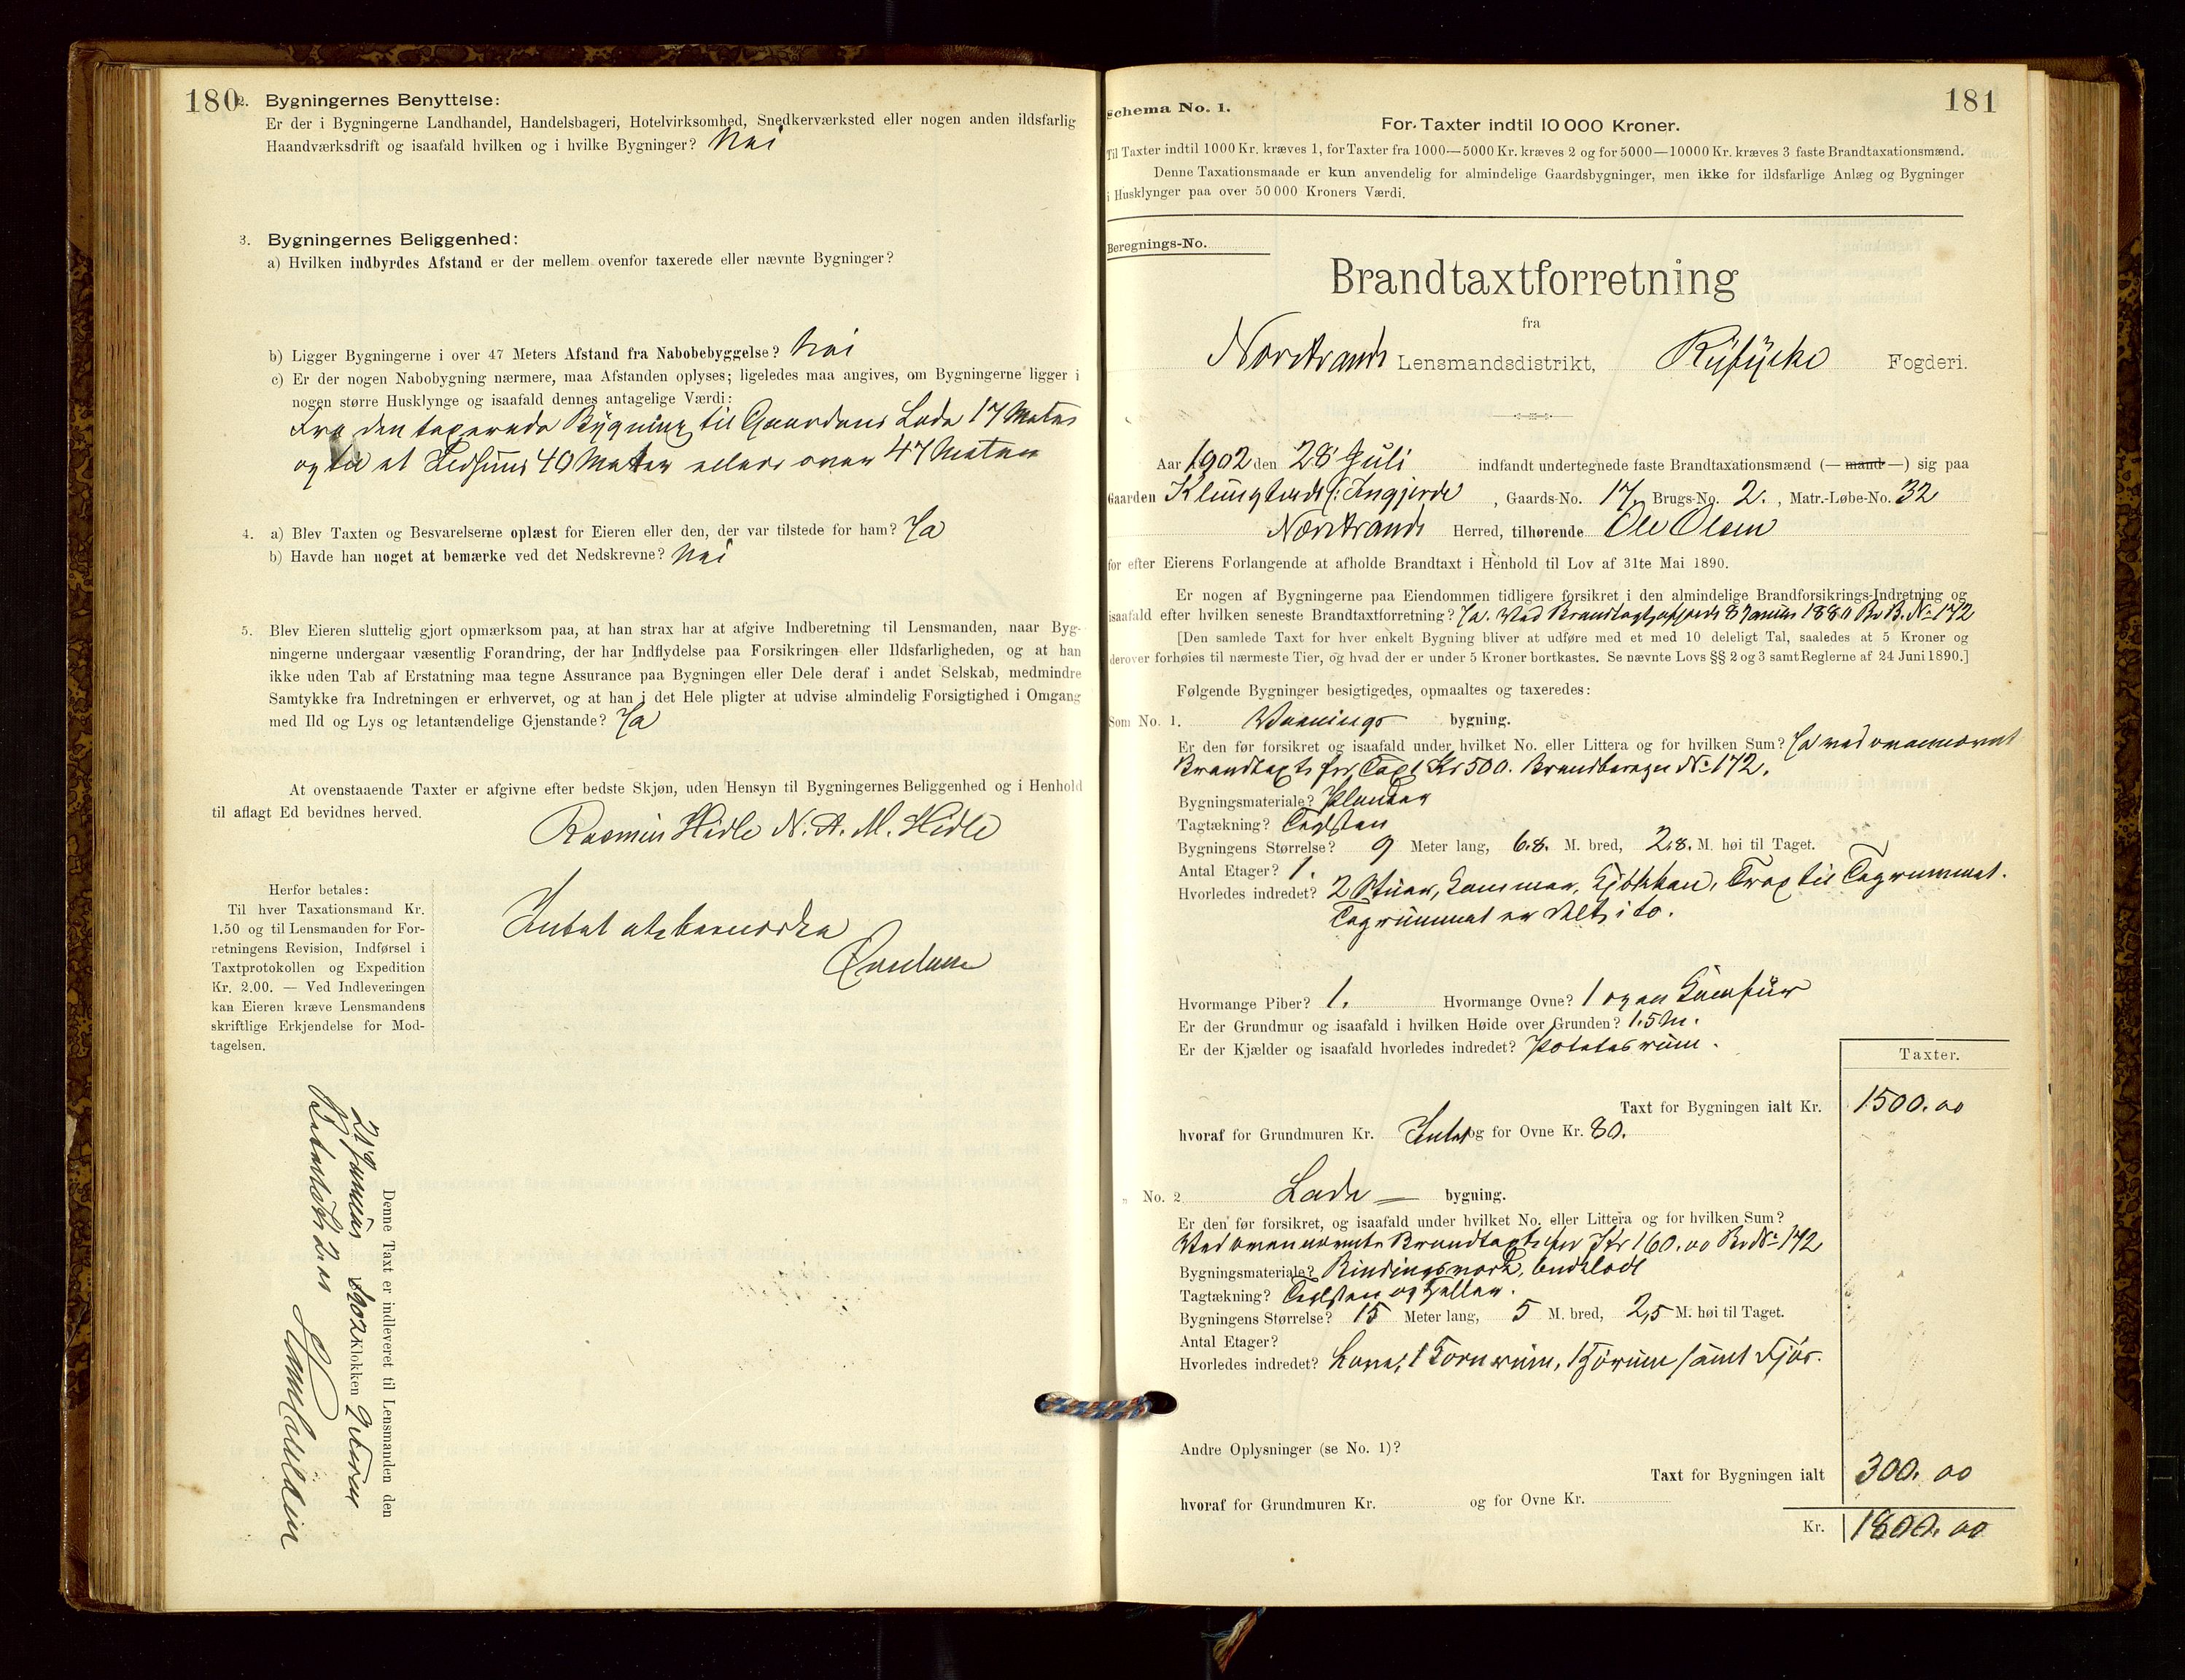 180
2. Bygningernes Benyttelse:
Er der i Bygningerne Landhandel, Handelsbageri, Hotelvirksomhed, Snedkerværksted eller nogen anden ildsfarlig
Haandværksdrift og isaafald hvilken og i hvilke Bygninger? Nei
3. Bygningernes Beliggenhed:
a) Hvilken indbyrdes Afstand er der mellem ovenfor taxerede eller nævnte Bygninger?
b) Ligger Bygningerne i over 47 Meters Afstand fra Nabobebyggelse? Nei
c) Er der nogen Nabobygning nærmere, maa Afstanden oplyses; ligeledes maa angives, om Bygningerne ligger i
nogen større Husklynge og isaafald dennes antagelige Værdi:
Fra den taxerede Bygning til Gaardens Lade 17 Meter
og til et Ildhuus 40 Meter ellers over 47 Meter
4. a) Blev Taxten og Besvarelserne oplæst for Eieren eller den, der var tilstede for ham? Ja
b) Havde han noget at bemærke ved det Nedskrevne? Nei
5. Blev Eieren sluttelig gjort opmærksom paa, at han strax har at afgive Indberetning til Lensmanden, naar Byg-
ningerne undergaar væsentlig Forandring, der har Indflydelse paa Forsikringen eller Ildsfarligheden, og at han
ikke uden Tab af Erstatning maa tegne Assurance paa Bygningen eller Dele deraf i andet Selskab, medmindre
Samtykke fra Indretningen er erhvervet, og at han i det Hele pligter at udvise almindelig Forsigtighed i Omgang
med Ild og Lys og letantændelige Gjenstande? Ja
At ovenstaaende Taxter er afgivne efter bedste Skjøn, uden Hensyn til Bygningernes Beliggenhed og i Henhold
til aflagt Ed bevidnes herved.
Rasmus Hidle N. A. M. Hidle
Intet at bemærke
Herfor betales:
Til hver Taxationsmand Kr.
1.50 og til Lensmanden for For-
retningens Revision, Indførsel i
Taxtprotokollen og Expedition
Kr. 2.00. — Ved Indleveringen
kan Eieren kræve Lensmandens
skriftlige Erkjendelse for Mod-
tagelsen.
Denne Taxt er indleveret til Lensmanden den
21 Januar 1902 Klokken
181
Schema No. 1.
For Taxter indtil 10 000 Kroner.
Til Taxter indtil 1000 Kr. kræves 1, for Taxter fra 1000—5000 Kr. kræves 2 og for 5000—10000 Kr. kræves 3 faste Brandtaxationsmænd.
Denne Taxationsmaade er kun anvendelig for almindelige Gaardsbygninger, men ikke for ildsfarlige Anlæg og Bygninger
i Husklynger paa over 50 000 Kroners Værdi.
Beregnings-No.
Brandtaxtforretning
fra
Nærstrands Lensmandsdistrikt, Ryfylke Fogderi.
Aar 1902 den 28 Juli indfandt undertegnede faste Brandtaxationsmænd (— mand —) sig paa
Gaarden Klungtvedt i Ingjerde, Gaards-No. 17, Brugs-No. 2., Matr.-Løbe-No. 32
Nærstrands Herred, tilhørende Ole Olsen
for efter Eierens Forlangende at afholde Brandtaxt i Henhold til Lov af 31te Mai 1890.
Er nogen af Bygningerne paa Eiendommen tidligere forsikret i den almindelige Brandforsikrings-Indretning og
isaafald efter hvilken seneste Brandtaxtforretning? Ja. Ved Brandtaxt 8 Januar 1880 Br. B. No 172
[Den samlede Taxt for hver enkelt Bygning bliver at udføre med et med 10 deleligt Tal, saaledes at 5 Kroner og
derover forhøies til nærmeste Tier, og hvad der er under 5 Kroner bortkastes. Se nævnte Lovs §§ 2 og 3 samt Reglerne af 24 Juni 1890.]
Følgende Bygninger besigtigedes, opmaaltes og taxeredes:
Som No. 1. Vaanings bygning.
Er den før forsikret og isaafald under hvilket No. eller Littera og for hvilken Sum? Ja ved ovennævnt
Brandtaxt for Taxt Kr 500. Brandberegn No 172.
Bygningsmateriale? Planker
Tagtækning? Teglsten
Bygningens Størrelse? 9 Meter lang, 6.8. M. bred, 2.8. M. høi til Taget.
Antal Etager? 1.
Hvorledes indredet? 2 Stuer, Kammer, Kjøkken, Trap til Tagrummet.
Tagrummet er delt i to.
Hvormange Piber? 1. Hvormange Ovne? 1 og en Komfur
Er der Grundmur og isaafald i hvilken Høide over Grunden? 1.5 M.
Er der Kjælder og isaafald hvorledes indredet? Potetesrum.
Taxter.
Taxt for Bygningen ialt Kr. 1500.00
hvoraf for Grundmuren Kr. Intet og for Ovne Kr. 80.
„ No. 2 Lade — bygning.
Er den før forsikret, og isaafald under hvilket No. eller Littera og for hvilken Sum?
Ved ovennævnte Brandtaxt for Kr 160.00 Br No 172
Bygningsmateriale? Bindingsværk, bordklædt
Tagtækning? Teglsten og Heller.
Bygningens Størrelse? 15 Meter lang, 5 M. bred, 2,5 M. høi til Taget.
Antal Etager?
Hvorledes indredet? Love, 1 Kornrum, 1 Hørum samt Fjøs.
Andre Oplysninger (se No. 1)?
Taxt for Bygningen ialt 300.00
hvoraf for Grundmuren Kr. og for Ovne Kr.
Kr. 1800.00